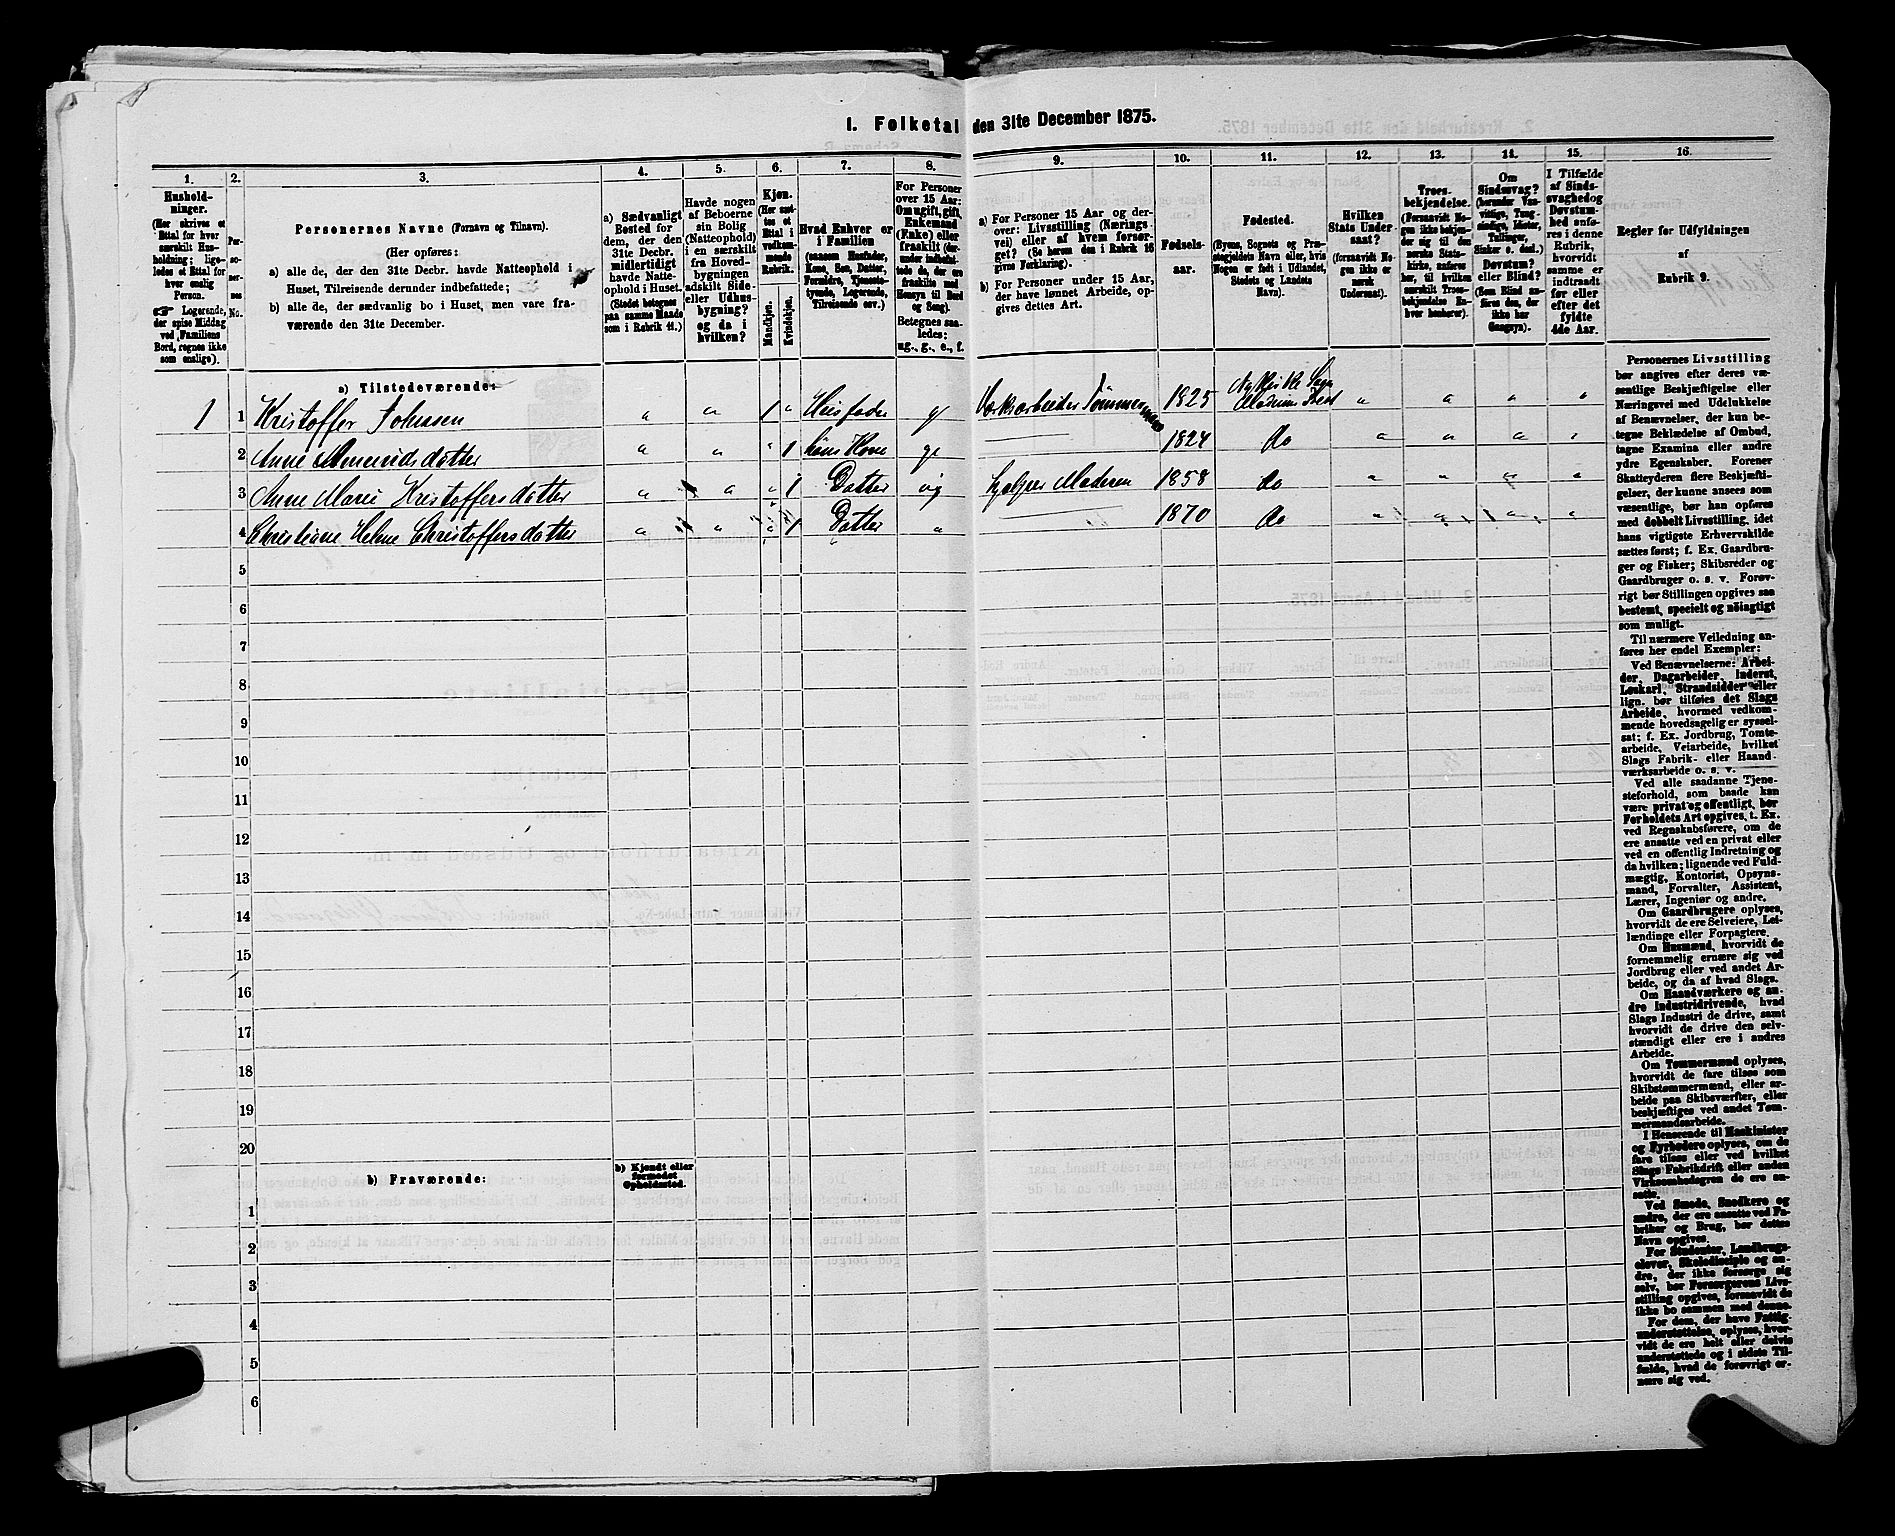 1. Folketal den 31te December 1875.
1. 2. 3. 4. 5. 6. 7. 8. 9. 10. 11. 12. 13. 14. 15. 16.
Hushold-
ninger.
(Her skrives et
Ettal for hver
særskilt Hus-
holdning; lige-
ledes et Ettal for
hver enslig
Person.
☞ Logerende,
der spise Middag
ved Familiens
Bord, regnes ikke
som enslige).
Per-
so-
ner-
nes
No.
Personernes Navne (Fornavn og Tilnavn).
(Her opføres:
a) alle de, der den 31te Decbr. havde Natteophold i
Huset, Tilreisende derunder indbefattede;
b) alle de, der sædvanlig bo i Huset, men vare fra-
værende den 31te December.
a) Sædvanligt
Bosted for
dem, der den
31te Decbr.
midlertidigt
havde Natte-
ophold i Huset.
(Stedet betegnes
paa samme Maade
som i Rubrik 11.)
Havde nogen
af Beboerne
sin Bolig
(Natteophold)
i en særskilt
fra Hoved-
bygningen
adskilt Side-
eller Udhus-
bygning?
og da i
hvilken?
Kjøn.
(Her sæt-
tes et
Ettal i
vedkom-
mende
Rubrik.
Mandkjøn.
Kvindekjøn.
Hvad Enhver er
i Familien
(saasom Husfader,
Kone, Søn, Datter,
Forældre, Tjeneste-
tyende, Logerende,
Tilreisende osv.)
For Personer
over 15 Aar:
Om ugift, gift,
Enkemand
(Enke) eller
fraskilt (der-
under indbefat-
tede de, der ere
fraskilte med
Hensyn til Bord
og Seng).
Betegnes saa-
ledes:
ug., g., e., f.
a) For Personer 15 Aar og der-
over: Livsstilling (Nærings-
vei) eller af hvem forsør-
get? (Se herom den i Rubrik 16
givne Forklaring).
b) For Personer under 15 Aar,
der have lønnet Arbeide, op-
gives dettes Art.
Fødsels-
aar.
Fødested.
(Byens, Sognets og Præ-
stegjeldets Navn eller, hvis
Nogen er født i Udlandet,
Stedets og Landets
Navn).
Hvilken
Stats Under-
saat?
(forsaavidt No-
gen ikke er
norsk
Undersaat).
Troes-
bekjendelse.
(Forsaavidt No-
gen ikke bekjen-
der sig til den
norske Stats-
kirke, anføres
her, til hvilken
særskilt Troes-
bekjendelse En-
hver henhører).
Om
Sindssvag?
(herunder Van-
vittige, Tung-
sindige, Idioter,
Tullinger,
Sinker o. desl.)
Døvstum?
eller Blind?
(Som Blind an-
føres den, der
ikke har
Gangsyn).
I Tilfælde
af Sinds-
svaghed og
Døvstum-
hed anfø-
res i denne
Rubrik,
hvorvidt
samme er
indtraadt
før eller
efter det
fyldte
4de Aar.
Regler for Udfyldningen
af
Rubrik 9.
a) Tilstedeværende:
1 1 Kristoffer Johnsen " " 1 " Husfader g Værksarbeider Tømmermand 1825 Modums " " " "
2 Anne Amundsdatter " " " 1 hans Kone g 1824 do " " " "
3 Anne Marie Kristoffersdatter " " " 1 Datter ug hjelper Moderen 1858 do " " " "
4 Christiane Helene Christoffersdatter " " " 1 Datter " 1870 do " " " "
5
6
7
8
9
10
11
12
13
14
15
16
17
18
19
20
b) Fraværende:
b) Kjendt eller
formodet
Opholdssted.
1
2
3
4
5
6
Personernes Livsstilling
bør angives efter deres væ-
sentlige Beskjæftigelse eller
Næringsvei med Udelukkelse
af Benævnelser, der kun be-
tegne Beklædelse af Ombud,
tagne Examina eller andre
ydre Egenskaber. Forener
Skatteyderen flere Beskjæfti-
gelser, der kunne ansees som
væsentlige, bør han opføres
med dobbelt Livsstilling, idet
hans vigtigste Erhvervskilde
sættes først; f. Ex. Gaardbru-
ger og Fisker; Skibsreder og
Gaardbruger o. s. v. Forøv-
rigt bør Stillingen opgives saa
bestemt, specielt og nøiagtigt
som muligt.
Til nærmere Veiledning an-
føres her endel Exempler:
Ved Benævnelserne: Arbei-
der, Dagarbeider, Inderst,
Løskarl, Strandsidder eller
lign. bør tilføies det Slags
Arbeide, hvormed vedkom-
mende hovedsagelig er syssel-
sat; f. Ex. Jordbrug, Tomte-
arbeide, Veiarbeide, hvilket
Slags Fabrik- eller Haand
værksarbeide o. s. v.
Ved alle saadanne Tjene-
steforhold, som baade kan
være privat og offentligt, bør
Forholdets Art opgives, t. Ex.
ved Regnskabsførere, om de
ere ansatte ved en privat eller
ved en offentlig Indretning og
da hvilken; lignende ved Fuld-
mægtig, Kontorist, Opsyns-
mand, Forvalter, Assistent,
Lærer, Ingeniør og andre.
Om Gaardbrugere oplyses,
hvorvidt de ere Selveiere, Lei-
lændinge eller Forpagtere.
Om Husmænd, hvorvidt de
fornemmelig ernære sig ved
Jordbrug eller ved andet Ar-
beide, og da af hvad Slags.
Om Haandværkere og an-
dre Industridrivende, hvad
Slags Industri de drive, samt
hvorvidt de drive den selv-
stændigt eller ere i andres
Arbeide.
Om Tømmermænd oplyses,
hvorvidt de fare tilsøs som
Skibstømmermænd, eller ar-
beide paa Skibsværfter, eller
beskjæftiges ved andet Tøm-
mermandsarbeide.
I Henseende til Maskinister
og Fyrbødere oplyses, om de
fare tilsøs eller ved hvilket
Slags Fabrikdrift eller anden
Virksomhedsgren de ere an-
satte.
Ved Smede, Snedkere og
andre, der ere ansatte ved Fa-
briker og Brug, bør dettes
Navn opgives.
For Studenter, Landbrugs-
elever, Skoledisciple og an-
dre, der ikke forsørge sig
selv, bør Forsørgerens Livs-
stilling opgives, forsaavidt de
ikke bo sammen med denne.
For dem, der have Fattig-
understøttelse, oplyses, hvor-
vidt de ere helt eller delvis
understøttede og i sidste Til-
fælde, hvad de forøvrigt er-
nære sig ved.